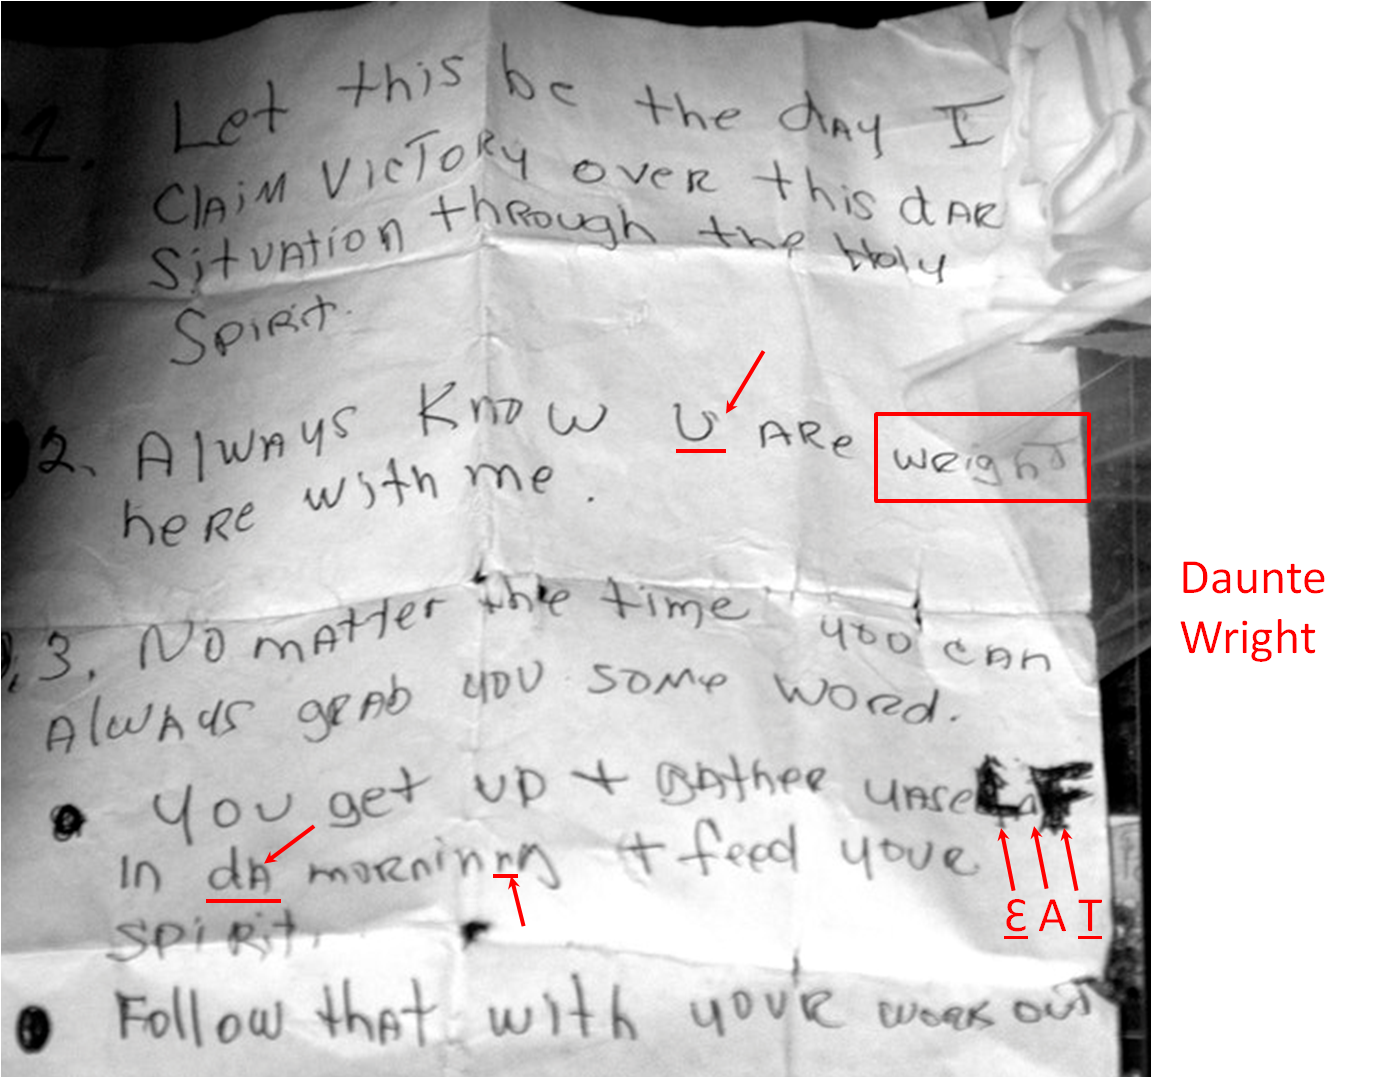 1. Let this be the day I
Claim Victory over this dAR
Situation through the Holy
Spirit.
2. Always Know U ARe weight
here with me.
3. No matter the time yoo can
Always grab you some word.
You get up + gather yAse
In dA morninng + feed your
spirit.
Follow that with your work out
Daunte
Wright
E A T